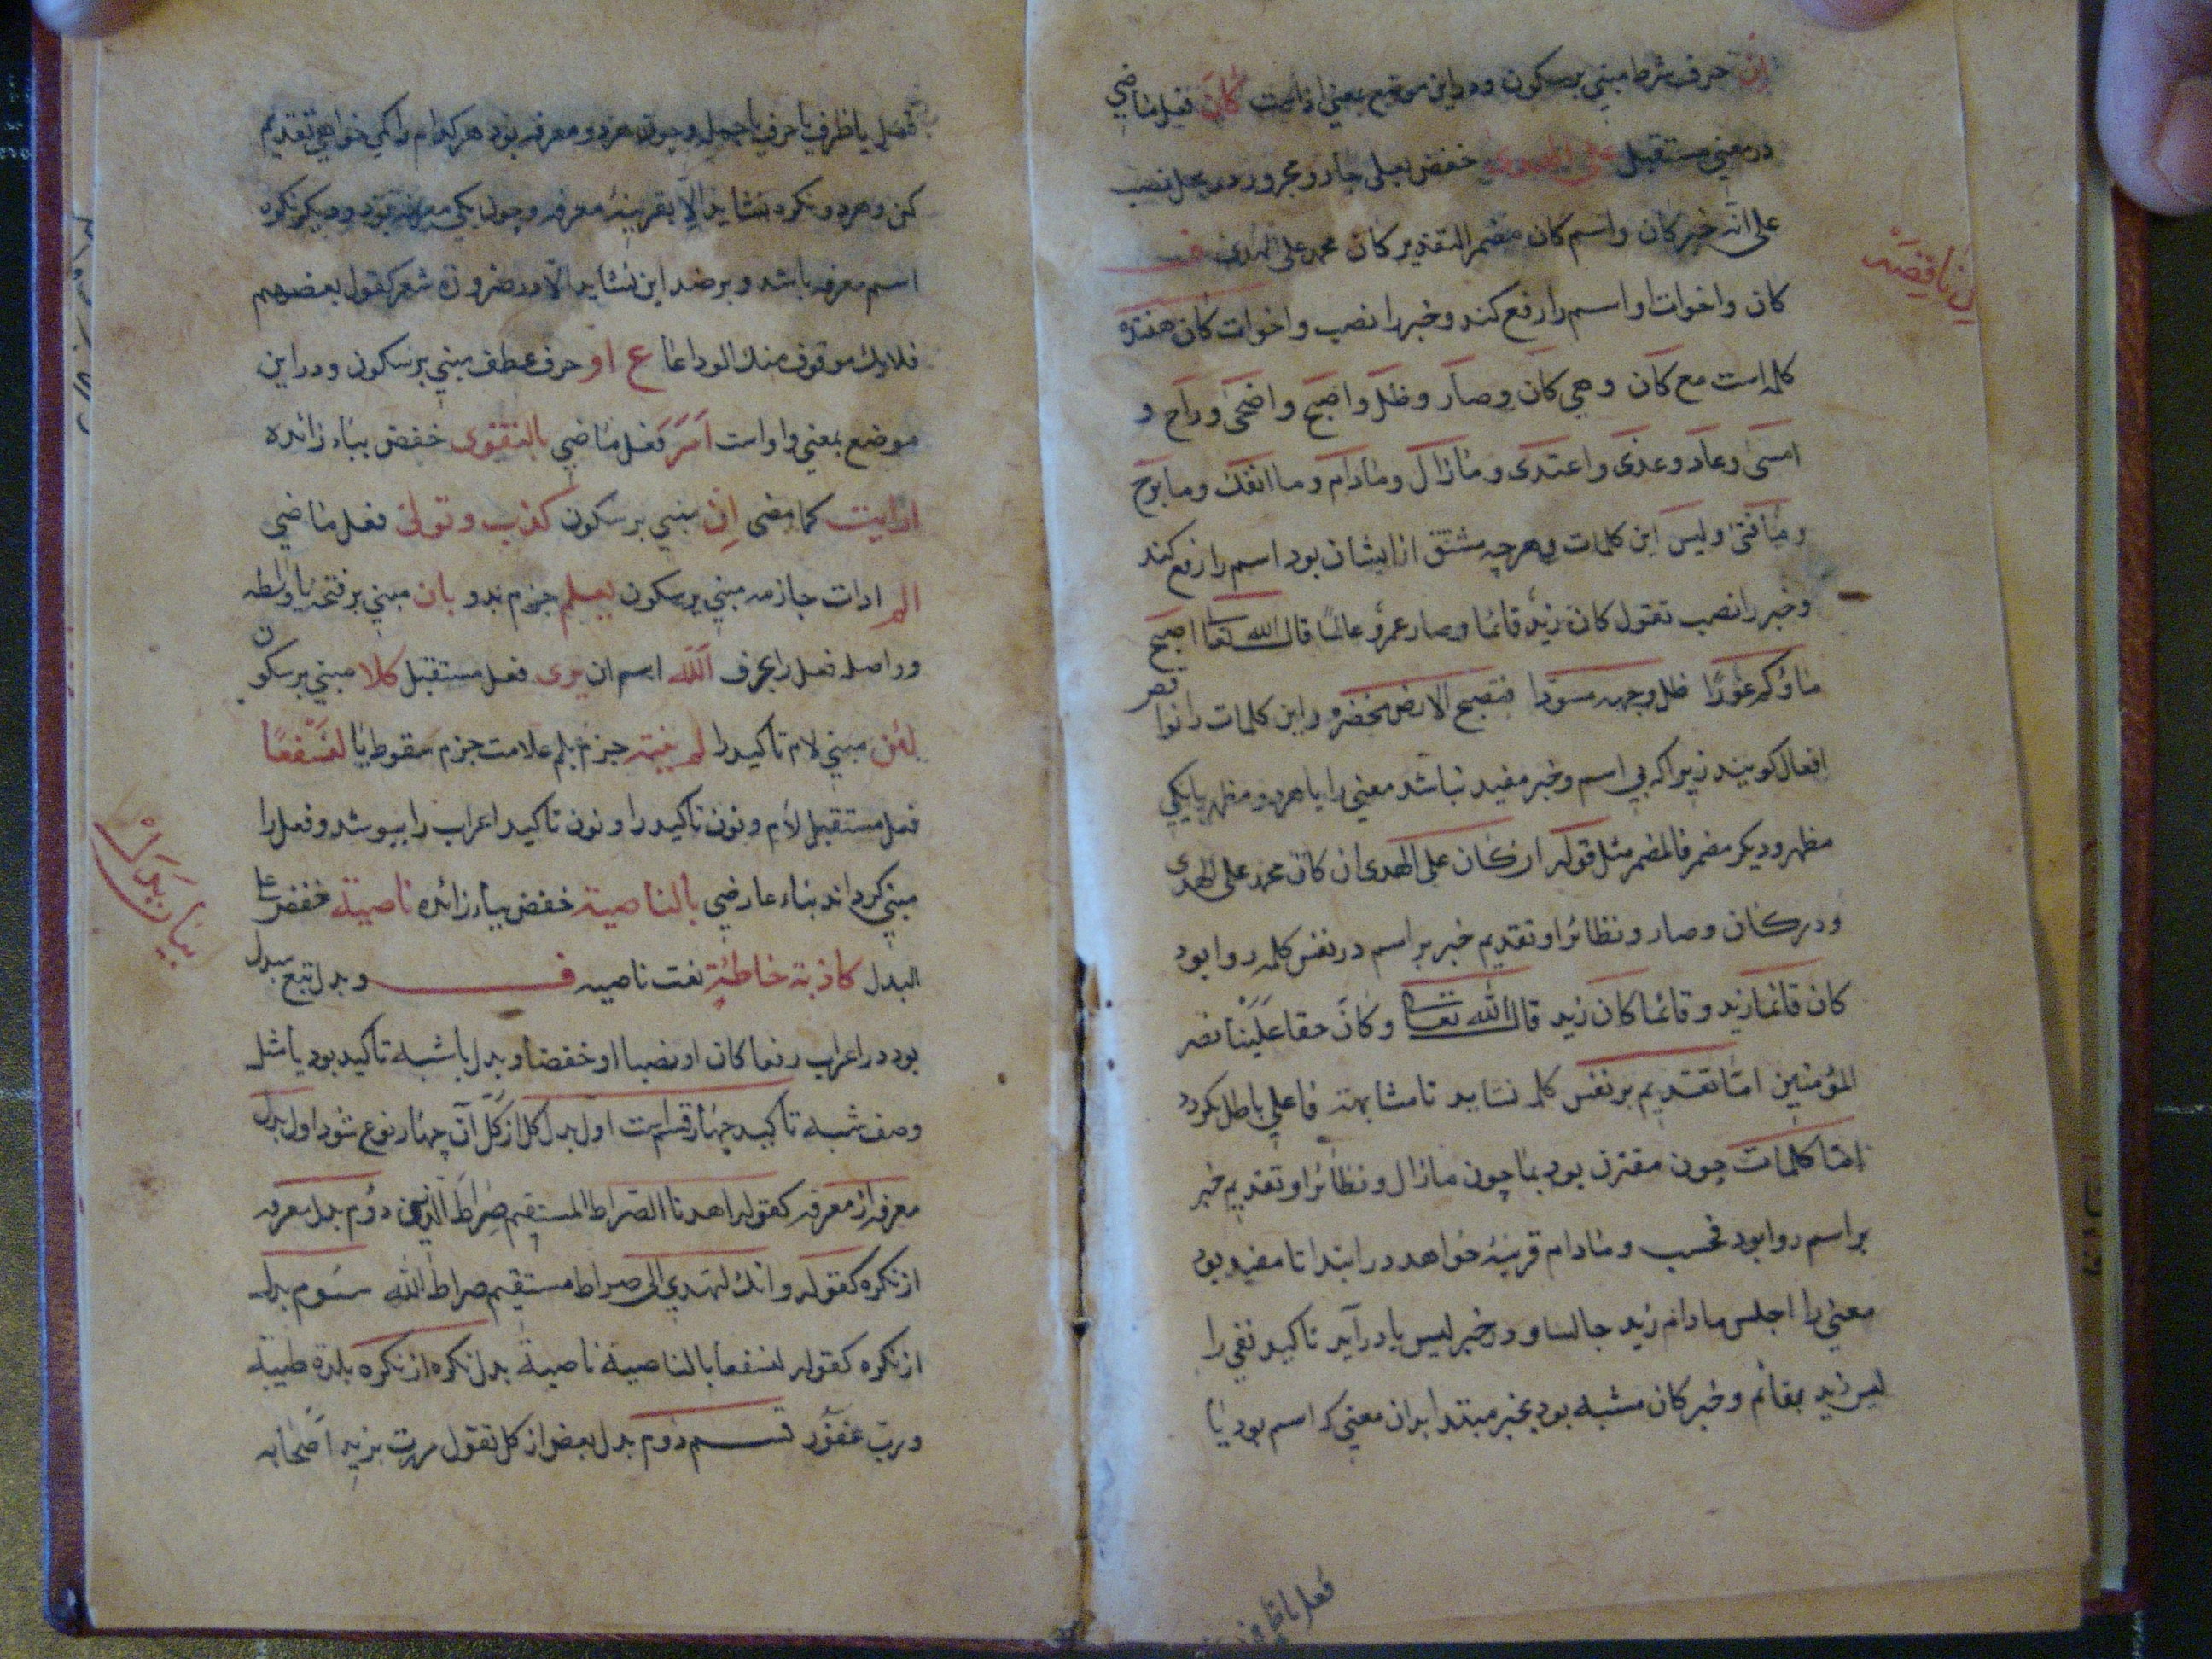 ان حرف شرط مبني بر سكون ودر اين موضع بمعني اذا است كان فعل ماضي
در معني مستقبل على الهدى خفض بعلى جار و مجرور در محل نصب
على انه خبر كان واسم كان مضمر التقدير كان محمد على الهدى ف
ناقصه
كان واخوات او اسم را رفع كند وخبر را نصب واخوات كان هفده
كلمه است مع كان وهي كان وصار وظل واصبح واضحى وراح و
امسى وعاد وغدى واعتدى وما زال وما دام وما انفك وما برح
وما فتئ وليس اين كلمات وهرچه مشتق از ايشان بود اسم را رفع كند
وخبر را نصب تقول كان زيد قائما وصار عمرو عالما قال الله تعا اصبح
ماؤكم غورا ظل وجهه مسودا فتصبح الارض مخضرة واين كلمات را نواقص
افعال كويند زيرا كه بي اسم وخبر مفيد نباشد معني را يا هر دو مظهر يا يكي
مظهر وديكر مضمر فالمضمر مثل قوله ان كان على الهدى ان كان محمد على الهدى
ودر كان وصار ونظائر او تقديم خبر بر اسم در نفس كلمه روا بود
كان قائما زيد وقائما كان زيد قال الله تعا وكان حقا علينا نصر
المؤمنين اما تقديم بر نفس كلمه نشايد تا مشابهة فاعلي باطل نكردد
اما كلمات چون مقترن بود بما چون ما زال ونظائر او تقديم خبر
بر اسم روا بود فحسب وما دام قرينه خواهد در ابتدا تا مفيد بود
معني را اجلس ما دام زيد جالسا ودر خبر ليس با در آيد تاكيد نفي را
ليس زيد بقائم وخبر كان مشبه بود بخبر مبتدا بدان معني كه اسم بود يا
فعل يا ظرف
فعل يا ظرف يا حرف يا جمله وچون هر دو معرفه بود هر كدام را كي خواهي تقديم
كن وهر دو نكره نشايد الا بقرينهٔ معرفه وچون يكي معرفه بود وديكر نكره
اسم معرفه باشد وبر ضد اين نشايد الا در ضرورة شعر كقول بعضهم
فلا يك موقف منك الوداعا ع او حرف عطف مبني بر سكون ودر اين
موضع بمعني واو است امر فعل ماضي بالتقوى خفض بباء زائده
ارايت كما مضى ان مبني بر سكون كذب وتولى فعل ماضي
الم ادات جازمه مبني بر سكون يعلم جزم بدو بان مبني بر فتحه با واسطه
وواصله فعل را بحرف الله اسم ان يرى فعل مستقبل كلا مبني بر سكون
لئن مبني لام تاكيد را لم ينته جزم بلم علامت جزم سقوط يا لنسفعا
فعل مستقبل لام ونون تاكيد را ونون تاكيد اعراب را بپوشد وفعل را
مبني كرداند بناء عارضي بالناصية خفض بباء زائده ناصية خفض على
بيان بدل
البدل كاذبة خاطئة نعت ناصيه ف وبدل تبع مبدل
بود در اعراب رفعا كان او نصبا او خفضا وبدل با شبه تاكيد بود يا مثل
وصف شبه تاكيد چهار قسم است اول بدل كل از كل آن چهار نوع شود اول بدل
معرفه از معرفه كقوله اهدنا الصراط المستقيم صراط الذين دوم بدل معرفه
از نكره كقوله وانك لتهدي الى صراط مستقيم صراط الله سوم بدل
از نكره كقوله لنسفعا بالناصية ناصية بدل نكره از نكره بلدة طيبة
ورب غفور قسم دوم بدل بعض از كل تقول مررت بزيد اصحابه